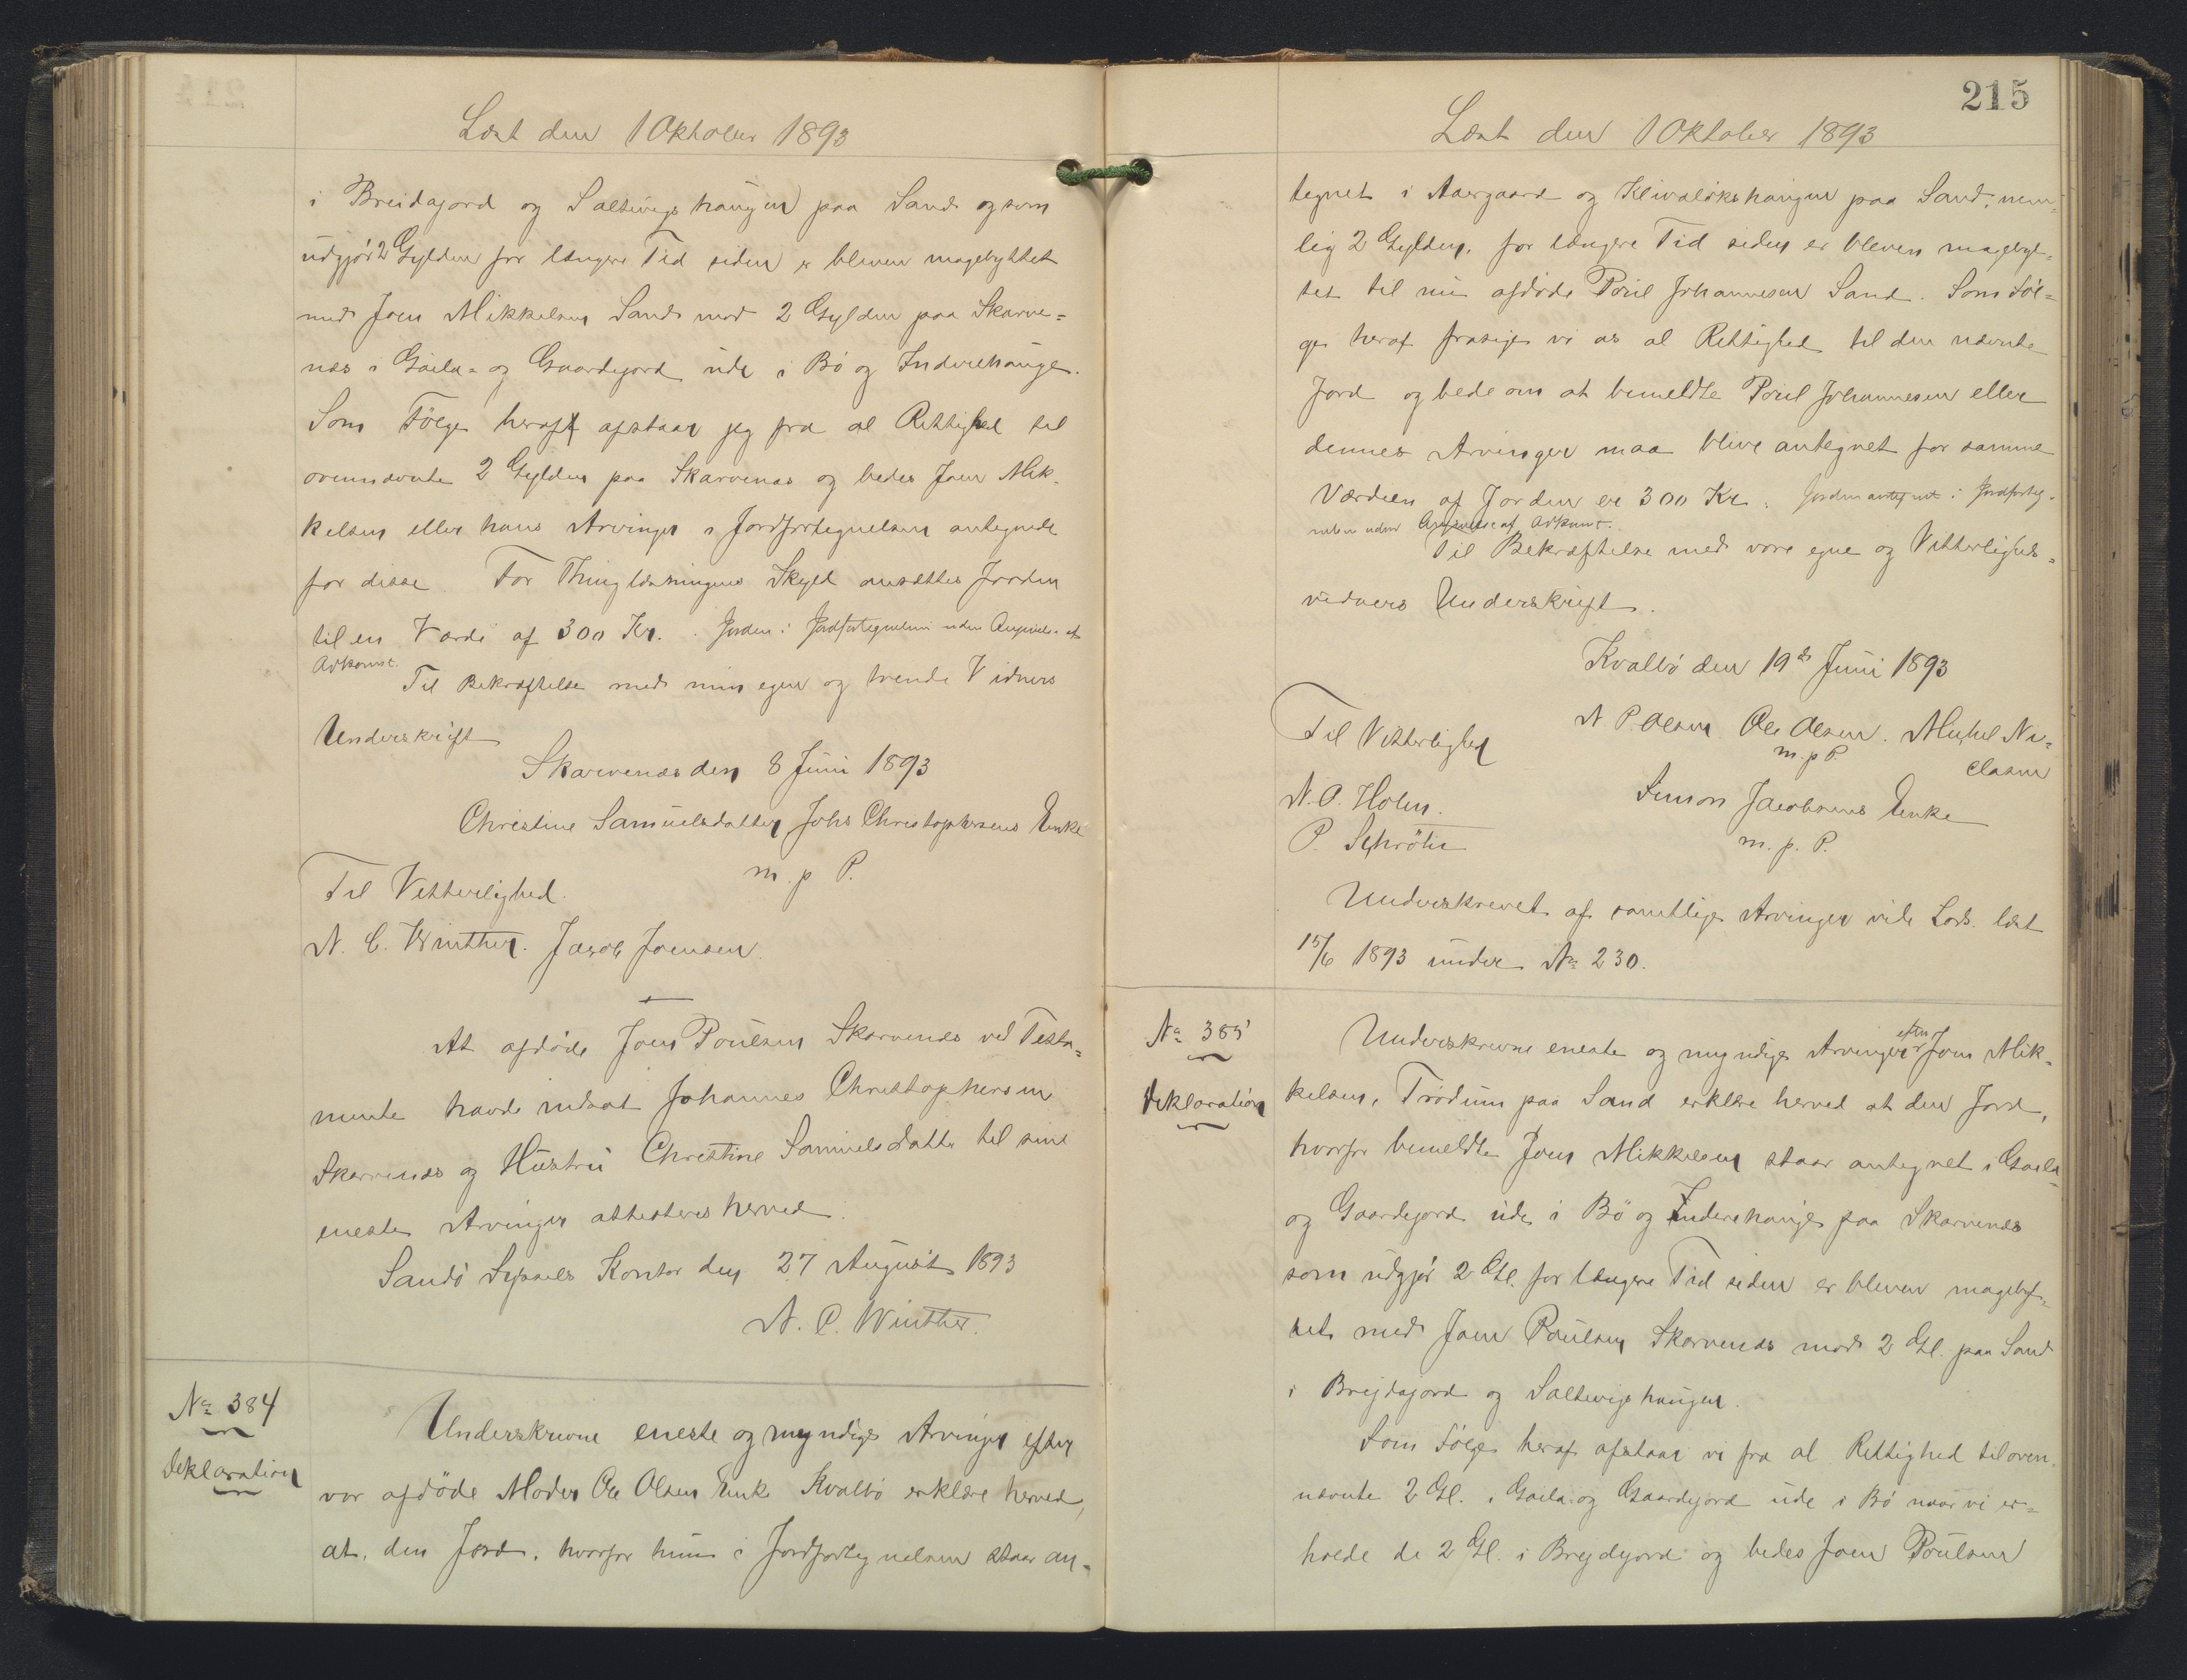 Læst den 1 Oktober 1893
i Breidajord og Saltvigshaugen paa Sand og som
udgjør 2 Gylden for længere Tid siden er bleven magebyttet
med Joen Mikkelsen Sand mod 2 Gylden paa Skarve=
næs i Gaila= og Gaardejord ude i Bö og Inderehauge.
Som Fölge heraf afstaar jeg fra al Rettighed til
ovennævnte 2 Gylden paa Skarvenæs og bedes Joen Mik-
kelsen eller hans Arvinger i Jordfortegnelsen antegnede
for disse. For Thinglæsningens Skyld ansættes Jorden
til en Værdi af 300 Kr. Jorden i Jordfortegnelsen uden Angivelse af
Adkomst.
Til Bekræftelse med min egen og tvende Vidners
Underskrift
Skarvenæs den 8 Juni 1893
Christine Samuelsdatter, Johs Christophersens Enke
m. p P.
Til Vitterlighed.
N. C. Winther. Jacob Joensen.
At afdöde Joen Poulsen Skarvenæs ved Testa=
mente havde indsat Johannes Christophersen
Skarvenæs og Hustru Christine Samuelsdatter til sine
eneste Arvinger attesteres herved.
Sandö Syssels Kontor den 27 August 1893
N. C. Winther.
No 384
Deklaration
Underskrevne eneste og myndige Arvinger efter
vor afdöde Moder Ole Olsens Enke Kvalbö erklære herved,
at den Jord, hvorfor hun i Jordfortegnelsen staar an=
215
Læst den 1 Oktober 1893
tegnet i Aargaard og Klivalökshaugen paa Sand, nem=
lig 2 Gylden, for længere Tid siden er bleven magebyt=
tet til nu afdöde Poul Johannesen Sand. Som Föl=
ge heraf frasige vi os al Rettighed til den nævnte
Jord og bede om at bemeldte Poul Johannesen eller
dennes Arvinger maa blive antegnet for samme
Værdien af Jorden er 300 Kr. Jorden antegnet i Jordforteg-
nelsen uden Angivelse af Adkomst.
Til Bekræftelse med vore egne og Vitterligheds=
vidners Underskrift.
Kvalbö den 19de Juni 1893
Til Vitterlighed
N P. Olsen Ole Olsen. Michel Ni=
m. p P.
clasen
N. O. Holm.
Simon Jacobsens Enke
P. Schröter
m. p. P.
Underskrevet af samtlige Arvinger vide Lods. læst
15/6 1893 under No 230.
No 385
Deklaration
Underskrevne eneste og myndige Arvinger efter Joen Mik-
kelsen, Trödum paa Sand erklære herved at den Jord,
hvorfor bemeldte Joen Mikkelsen staar antegnet i Gaila=
og Gaardejord ude i Bö og Inderehauge paa Skarvenæs
som udgjör 2 Gl. for længere Tid siden er bleven magebyt=
tet med Joen Poulsen Skarvenæs mod 2 Gl. paa Sand
i Brejdajord og Saltvigshaugen.
Som Fölge heraf afstaar vi fra al Rettighed til oven-
nævnte 2 Gl. i Gaila- og Gaardejord ude i Bö naar vi er=
holde de 2 Gl. i Brejdejord og bedes Joen Poulsen